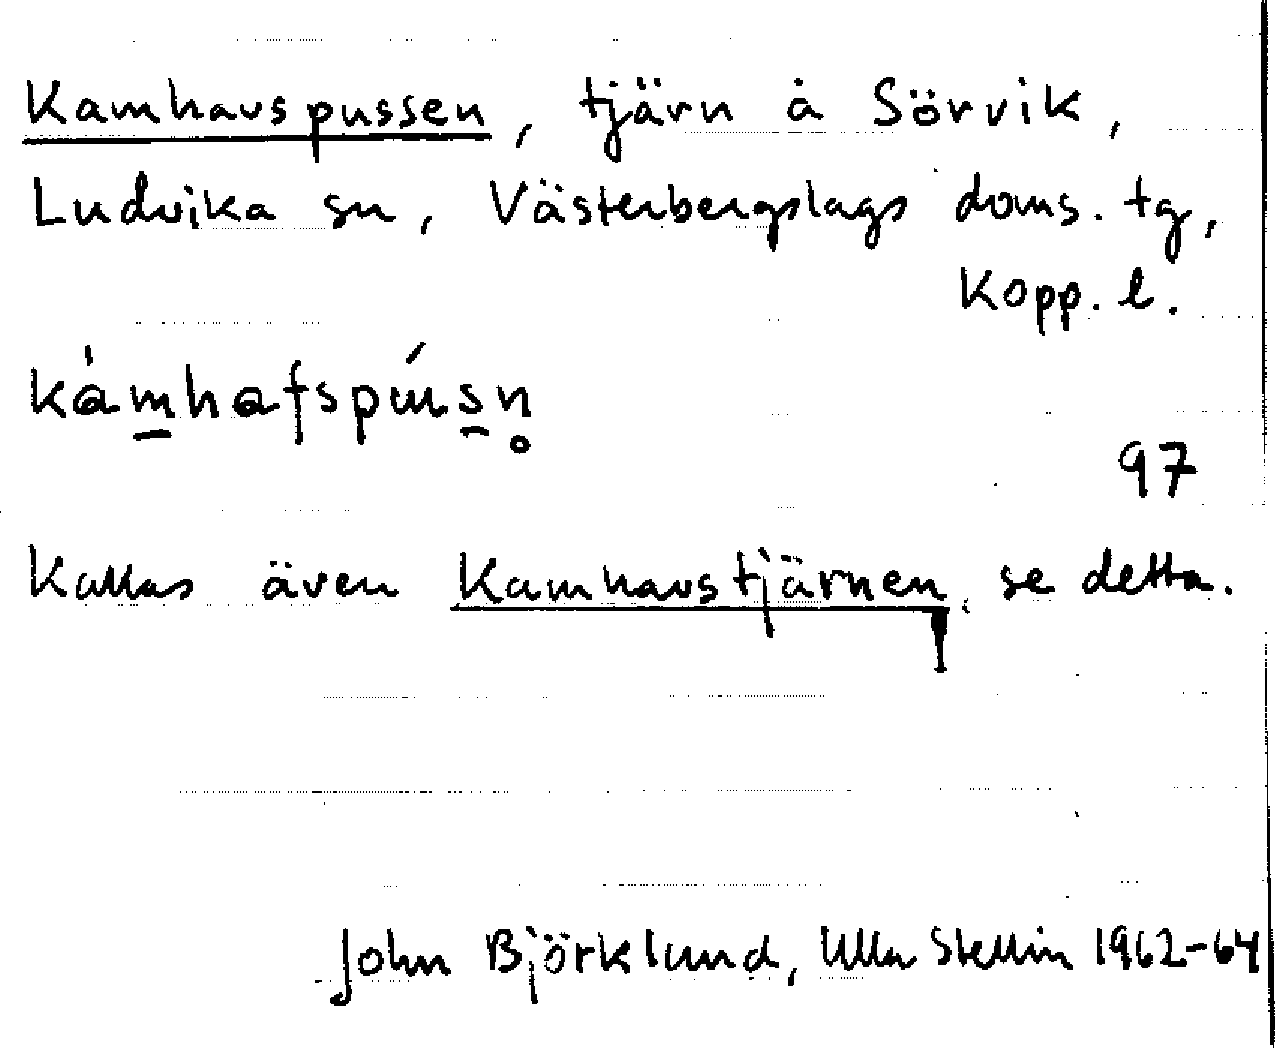 Kamhavspussen, tjärn å Sörvik,
Ludvika sn, Västerbergslags doms. tg,
Kopp. l.
kàm̠hafspús̠n̥
97
Kallas även Kamhavstjärnen, se detta.
John Björklund, Ulla Stellin 1962-64